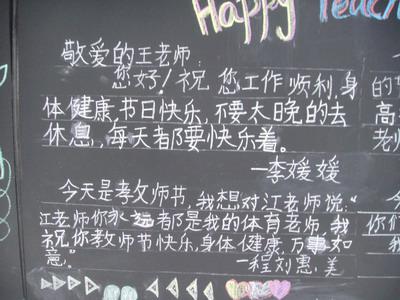 Happy Teach
敬爱的王老师:
您好!祝您工作顺利,身
体健康,节日快乐,不要太晚的去
休息,每天都要快乐着。
一李媛媛
今天是教师节,我想对江老师说:"
江老师你永远都是我的体育老师,我
祝你教师节快乐,身体健康,万事如
意。"
一程刘惠.美